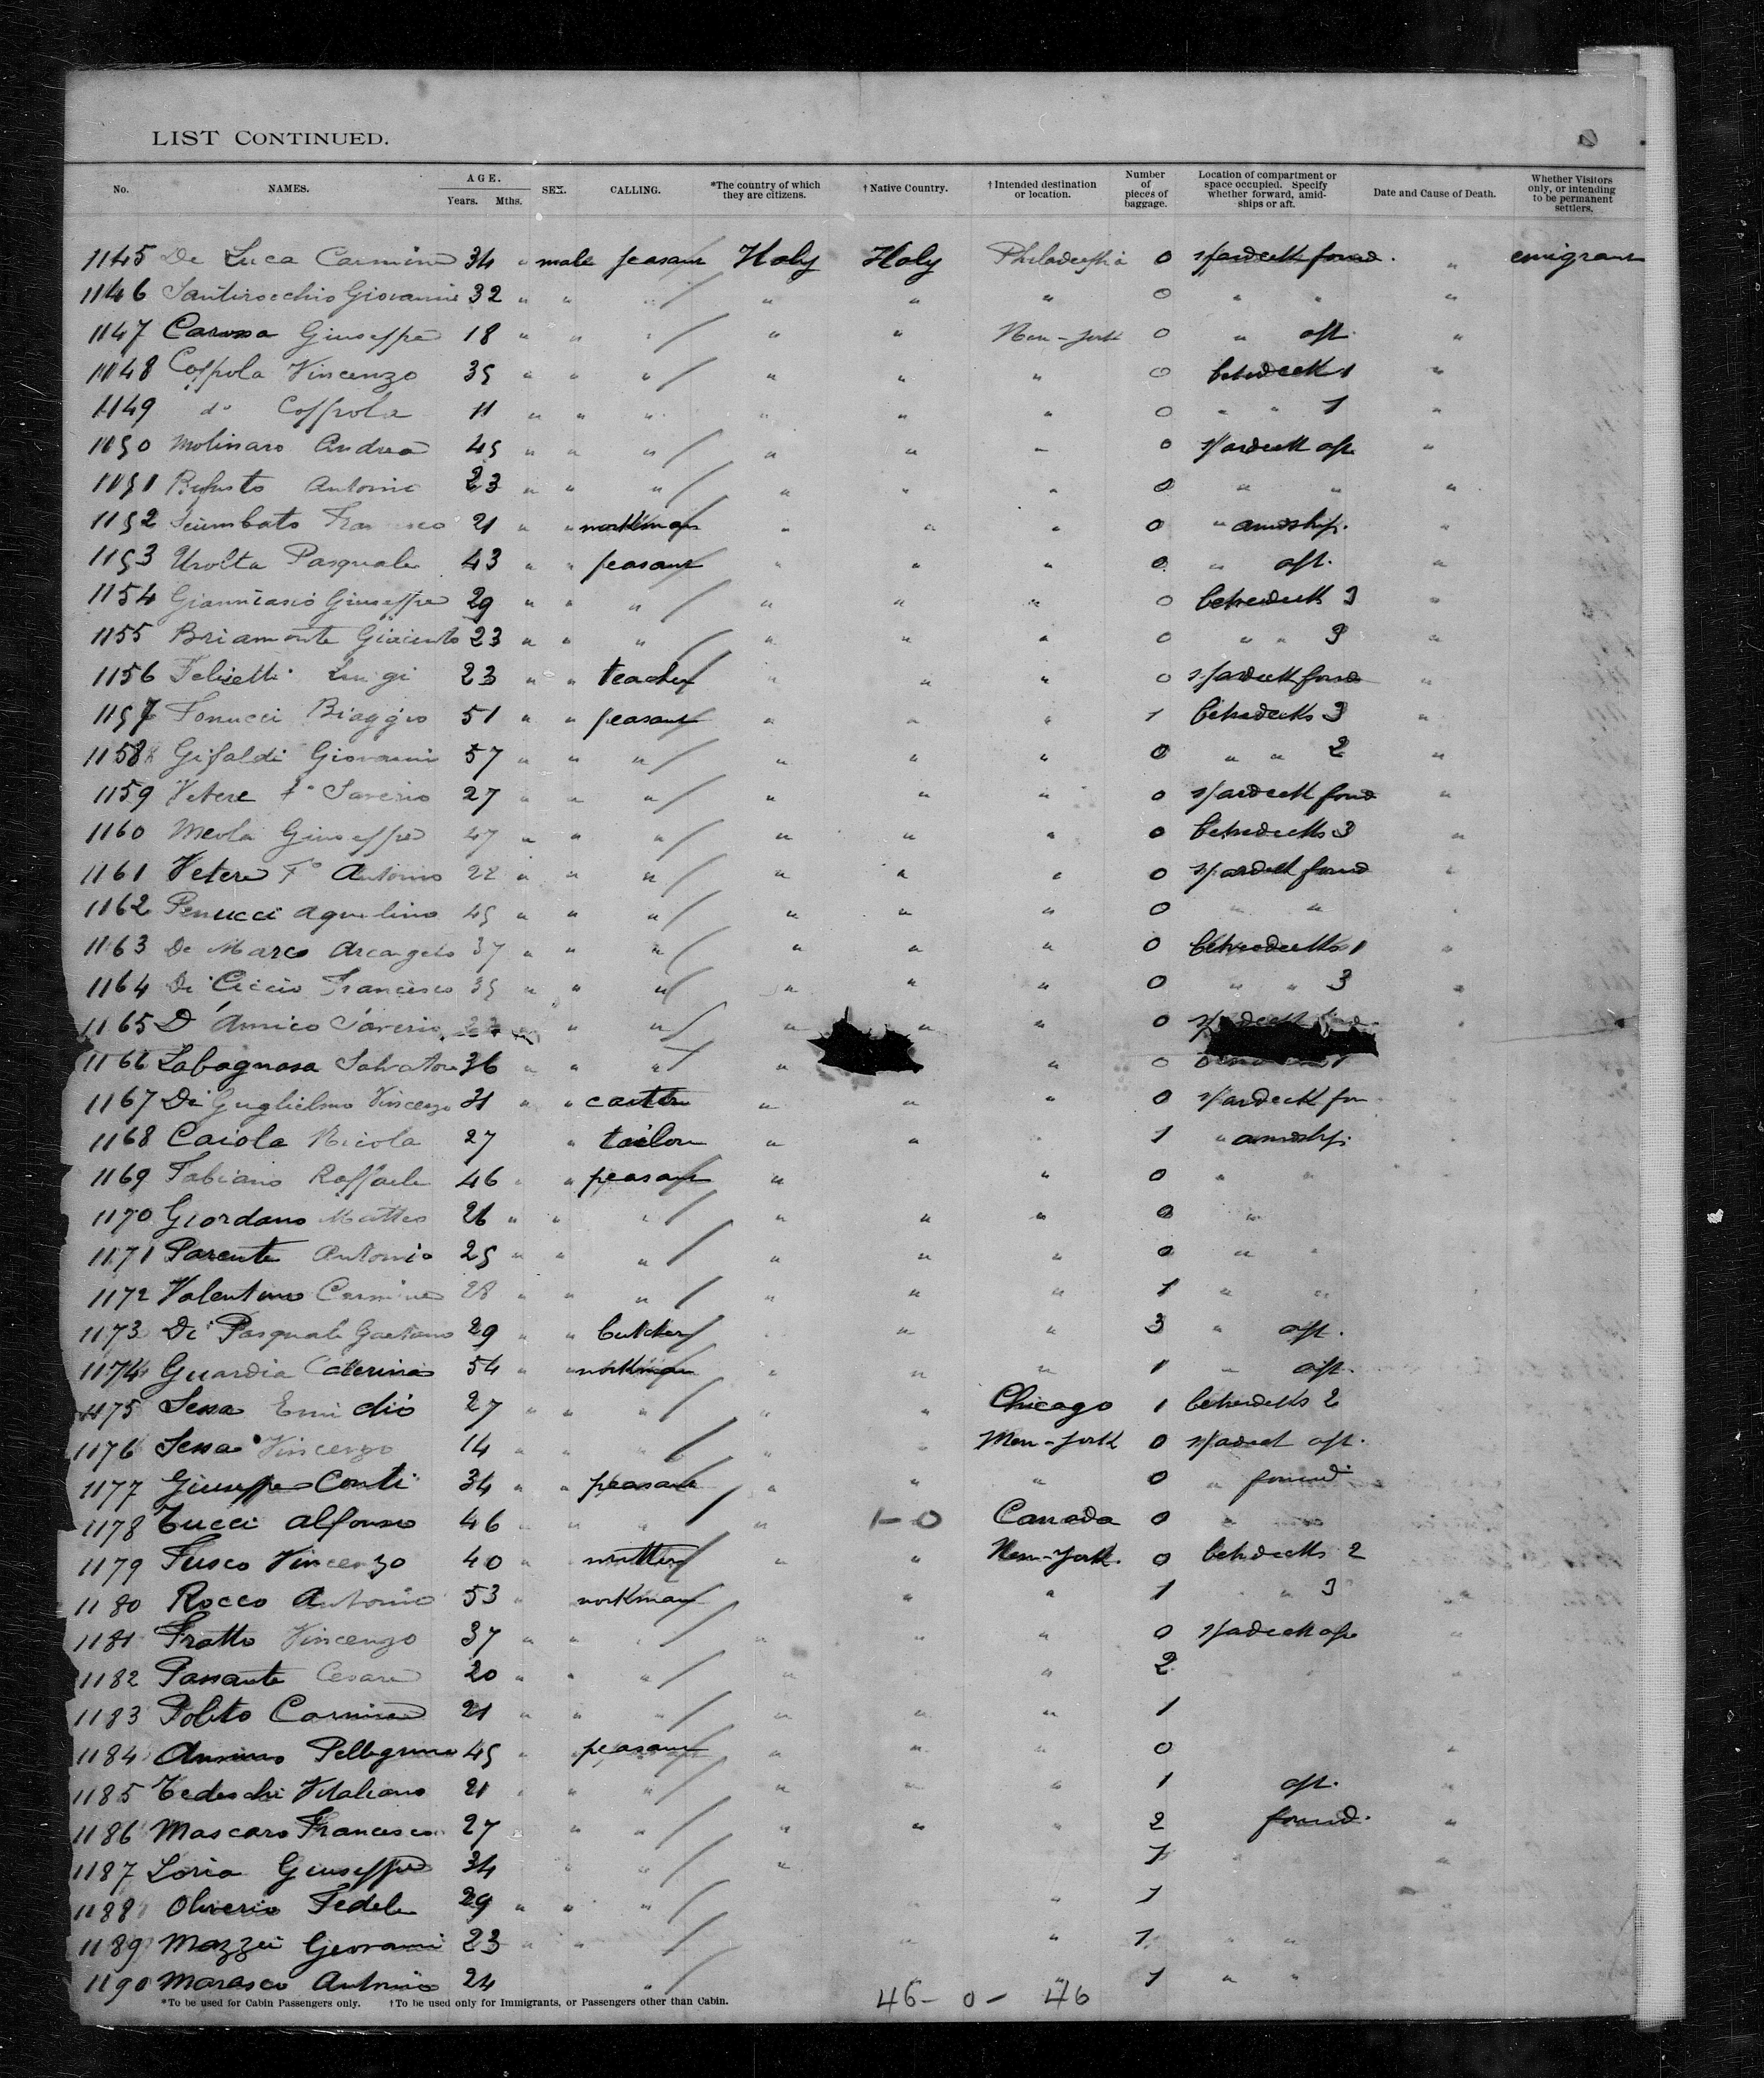 LIST CONTINUED.
No. NAMES. AGE. Years. Mths. SEX. CALLING. *The country of which they are citizens. † Native Country. † Intended destination or location. Number of pieces of baggage. Location of compartment or space occupied. Specify whether forward, amidships or aft. Date and Cause of Death. Whether Visitors only, or intending to be permanent settlers.
1145 De Luca Carmine 34 " male peasant Italy Italy Philadelphia 0 spardeck forwd. " emigrant
1146 Giovanni 32 " " " " " " 0 " " "
1147 Carussa Giuseppe 18 " " " " " New-York 0 " aft. "
1148 Coppola Vincenzo 35 " " " " " " 0 betwdeck 1 "
1149 do Coppola 11 " " " " " " 0 " " 1 "
1150 Molinaro Andrea 45 " " " " " " 0 spardeck aft "
1151 Antonio 23 " " " " " " 0 " " "
1152 Francesco 21 " " workman " " " 0 " amidship. "
1153 Pasquale 43 " " peasant " " " 0 " aft. "
1154 Giuseppe 29 " " " " " " 0 betwdeck 3 "
1155 Briamonte Giacinto 23 " " " " " " 0 " " 3 "
1156 Felicetti Luigi 23 " " teacher " " " 0 spardeck forwd "
1157 Fonucci Biaggio 51 " " peasant " " " 1 betwdecks 3 "
1158 Gifaldi Giovanni 57 " " " " " " 0 " " 2 "
1159 Vetere Fo Saverio 27 " " " " " " 0 spardeck forwd "
1160 Meola Giuseppe 47 " " " " " " 0 betwdecks 3 "
1161 Vetere Fo Antonio 22 " " " " " " 0 spardeck forwd "
1162 Penucci Aquilino 45 " " " " " " 0 " " "
1163 De Marco Arcangelo 37 " " " " " " 0 betwdecks 1 "
1164 Di Ciccio Francesco 35 " " " " " " 0 " " 3 "
1165 D'Amico Saverio " " " " " 0
1166 Labagnara Salvatore 36 " " " " " 0
1167 Di Guglielmo Vincenzo 31 " " " " " 0 spardeck
1168 Caiola Nicola 27 " tailor " " 1 " amidship.
1169 Fabiano Raffaele 46 " peasant " " 0 " "
1170 Giordano Matteo 26 " " " " " " 0 "
1171 Parente Antonio 25 " " " " " " 0 " "
1172 Valentino Carmine 28 " " " " " " 1 " "
1173 Di Pasquale Gaetano 29 " " butcher " " " 3 " aft.
1174 Guardia Caterina 54 " " workman " " " 1 " aft.
1175 Sessa Emidio 27 " " " " " Chicago 1 betwdecks 2
1176 Sessa Vincenzo 14 " " " " " New-York 0 spardeck aft.
1177 Giuseppe Conti 34 " " peasant " " " 0 " forwd.
1178 Tucci Alfonso 46 " " " " 1-0 Canada 0 "
1179 Fusco Vincenzo 40 " " " New-York. 0 betwdecks 2
1180 Rocco Antonio 53 " workman " " 1 " " 3
1181 Fratto Vincenzo 37 " " " " " " 0 spardeck aft
1182 Passante Cesare 20 " " " " " 2
1183 Polito Carmine 21 " " " " " " 1
1184 Pellegrino 45 " peasant " " " 0
1185 Tedeschi Vitaliano 21 " " " " " " 1 aft.
1186 Mascaro Francesco 27 " " " " " 2 forwd.
1187 Loria Giuseppe 34 " " " 1
1188 Oliverio Fedele 29 " " " " 1
1189 Mazzei Giovanni 23 " " " " 1 " "
1190 Marasco Antonio 24 " " 1 " "
*To be used for Cabin Passengers only. †To be used only for Immigrants, or Passengers other than Cabin.
46- 0- 46